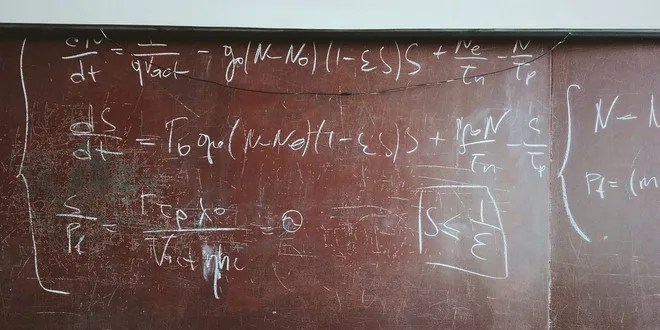 dN/dt = I/qVact - g₀(N-N₀)(1-εS)S + Ne/τn - N/τp
dS/dt = Γ₀g₀(N-N₀)(1-εS)S + N/τn - S/τp
S/Pf = λ₀/Vact ηhc =
S ≤ 1/ε
N =
Pf = (m